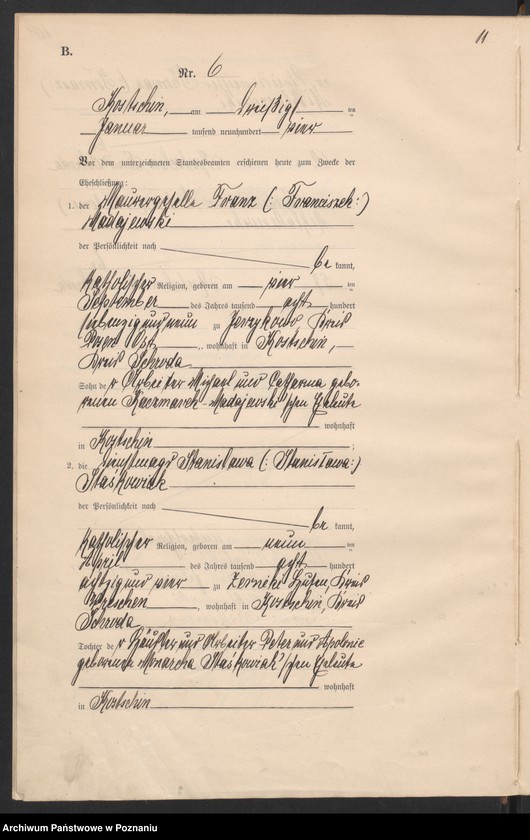 11
B.
Nr. 6
Kostschin, am dreißigsten
Januar tausend neunhundert vier
Vor dem unterzeichneten Standesbeamten erschienen heute zum Zwecke der
Eheschließung:
1. der Maurergeselle Franz (: Franciszek :)
Madajewski
der Persönlichkeit nach
be kannt,
katholischer Religion, geboren am vier ten
September des Jahres tausend acht hundert
siebenzig und neun zu Jerzykowo, Kreis
Posen Ost, wohnhaft in Kostschin,
Kreis Schroda
Sohn der Arbeiter Michael und Catharina gebo-
renen Kaczmarek-Madajewski'schen Eheleute
wohnhaft
in Kostschin ;
2. die Dienstmagd Stanislawa (: Stanisława :)
Staśkowiak
der Persönlichkeit nach
be kannt,
katholischer Religion, geboren am neun ten
April des Jahres tausend acht hundert
achtzig und vier zu Zerniki Hufen, Kreis
Wreschen, wohnhaft in Kostschin, Kreis
Schroda
Tochter der Häusler und Arbeiter Peter und Apolonie
geborenen Monarcha Staśkowiak'schen Eheleute
wohnhaft
in Kostschin
Archiwum Państwowe w Poznaniu